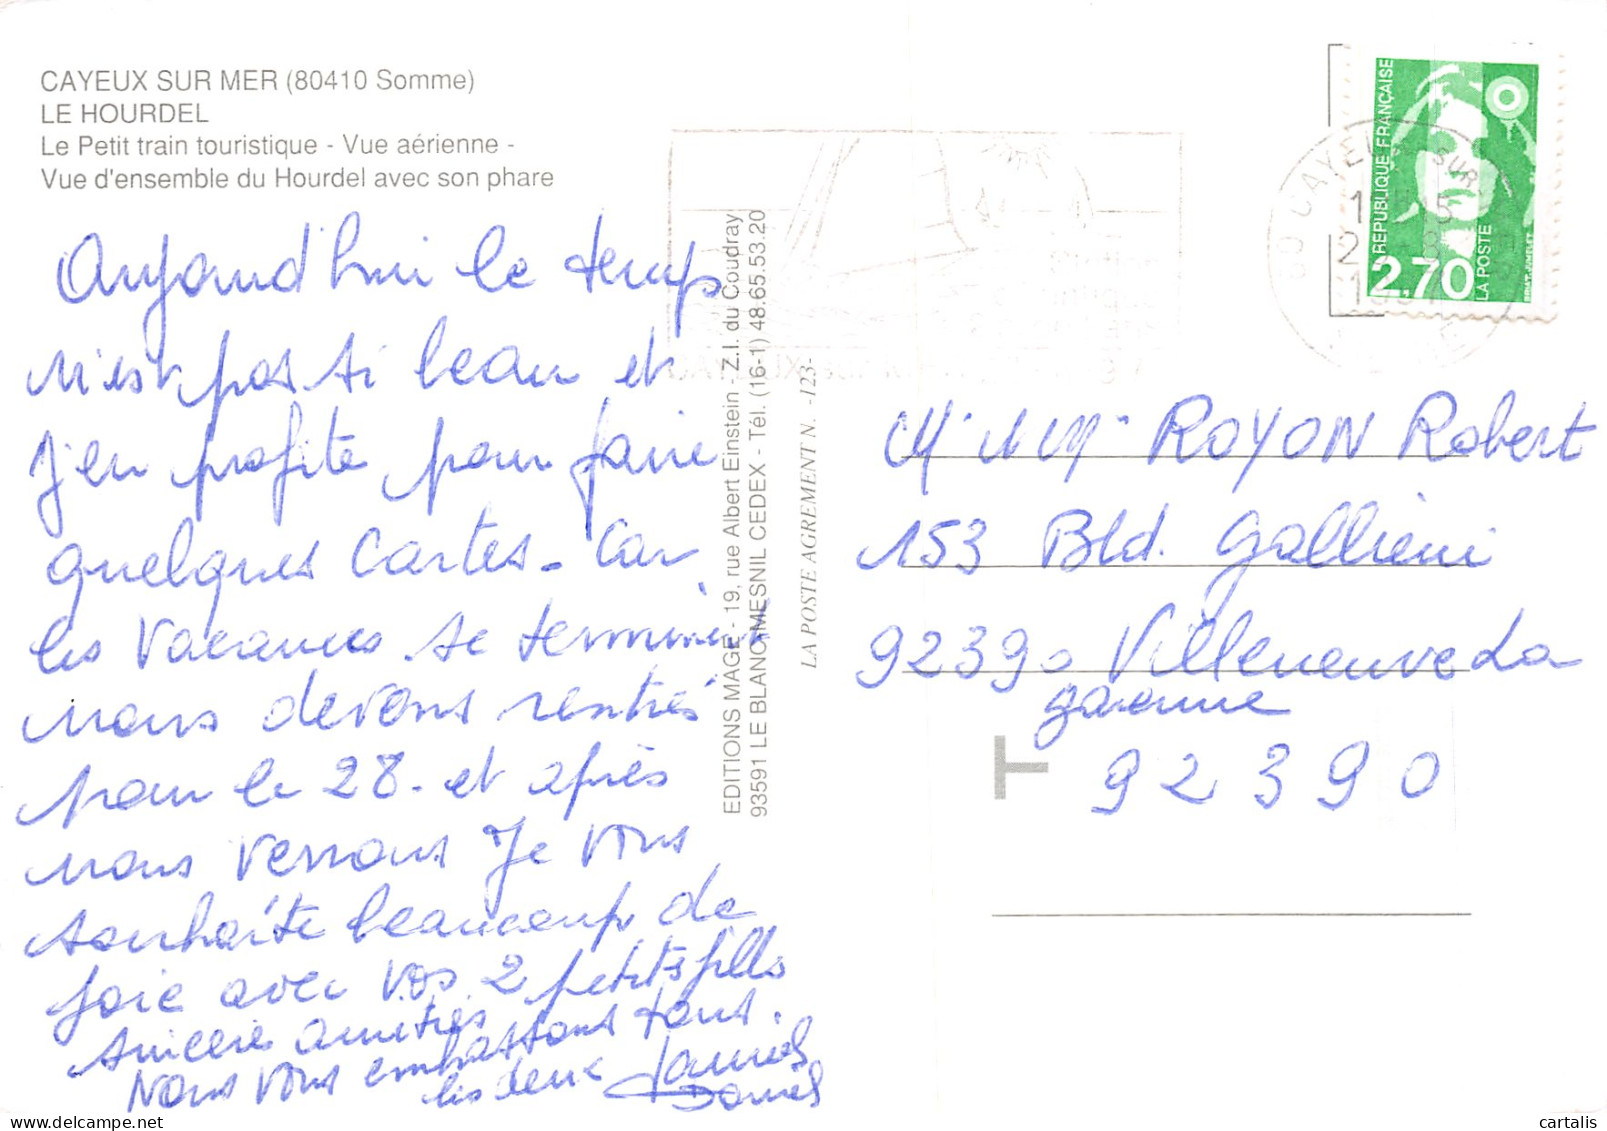 CAYEUX SUR MER (80410 Somme)
LE HOURDEL
Le Petit train touristique - Vue aérienne -
Vue d'ensemble du Hourdel avec son phare
Aujourd'hui le temps
n'est pas si beau et
j'en profite pour faire
quelques cartes - car
les vacances se terminent
nous devons rentrés
pour le 28. et après
nous verrons Je vous
souhaite beaucoup de
joie avec vos 2 petits fills
sincères amitiés
Nous vous embrassons tous.
les deux Daniel
EDITIONS MAGE - 19, rue Albert Einstein - Z.I. du Coudray
93591 LE BLANC MESNIL CEDEX - Tél. (16-1) 48.65.53.20
LA POSTE AGREMENT N. -123-
REPUBLIQUE FRANÇAISE
2,70
LA POSTE
CAYEUX SUR
Mr et Mme ROYON Robert
153 Bld. Gallieni
92390 Villeneuve La
garenne
92390
T
cartalis